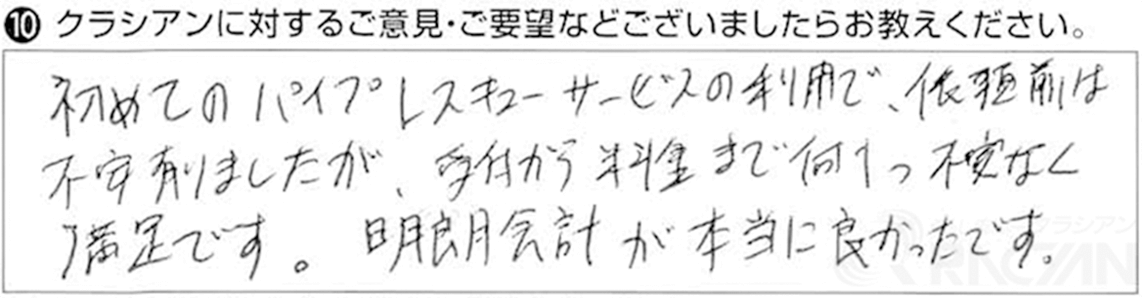 ❿ クラシアンに対するご意見・ご要望などございましたらお教えください。
初めてのパイプレスキューサービスの利用で、依頼前は
不安有りましたが、受付から料金まで何1つ不安なく
満足です。 明朗会計が本当に良かったです。
クラシアン
RACIAN